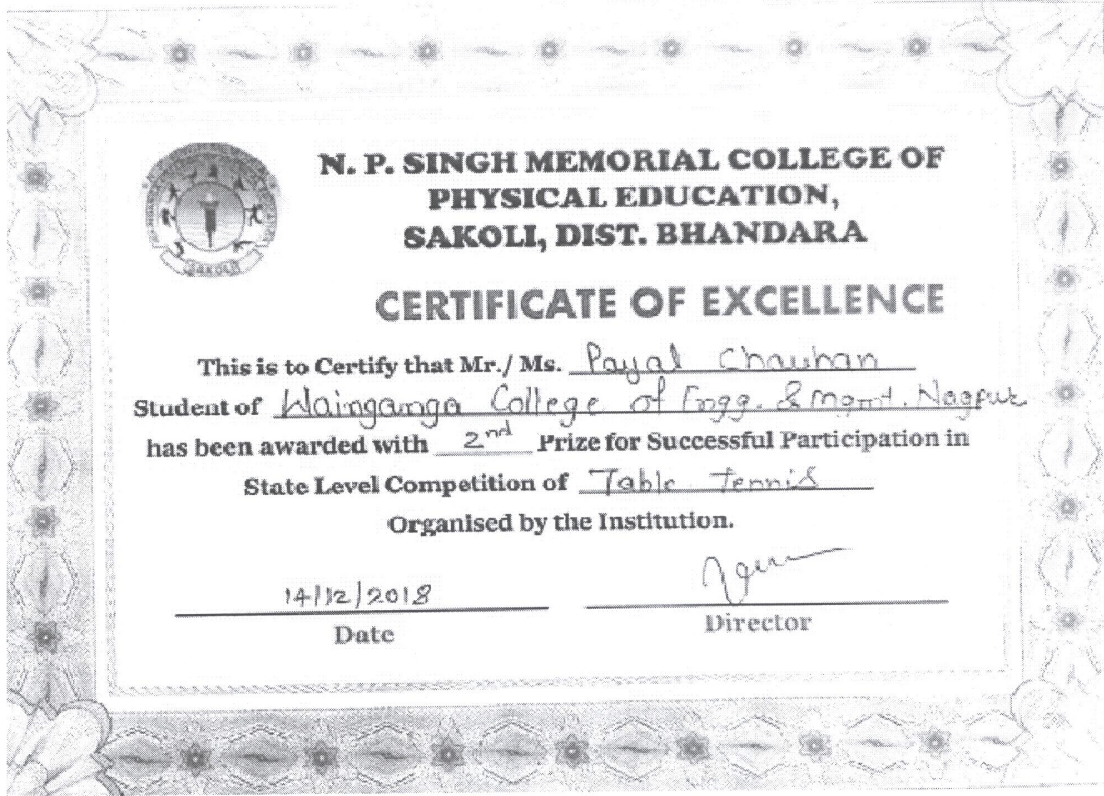 N. P. SINGH MEMORIAL COLLEGE OF
PHYSICAL EDUCATION,
SAKOLI, DIST. BHANDARA
SAKOLI
CERTIFICATE OF EXCELLENCE
This is to Certify that Mr./ Ms. Payal Chauhan
Student of Wainganga College of Engg. & Mgmt. Nagpur
has been awarded with 2nd Prize for Successful Participation in
State Level Competition of Table Tennis
Organised by the Institution.
14/12/2018
Date
Director